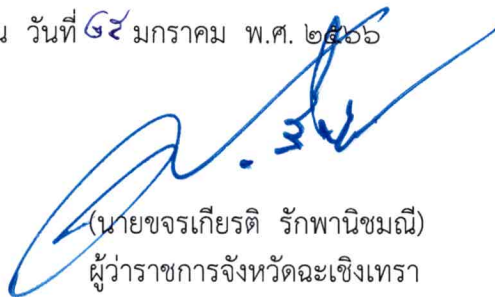 น วันที่ ๒๕ มกราคม พ.ศ. ๒๕๖๖
(นายขจรเกียรติ รักพานิชมณี)
ผู้ว่าราชการจังหวัดฉะเชิงเทรา